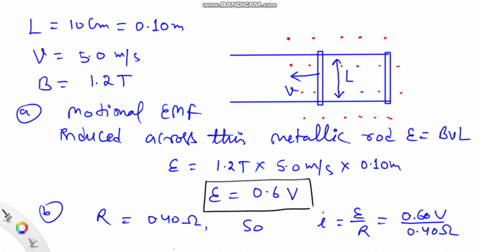 WWW.BANDICAM.COM
L = 10 Cm = 0.10m
V = 5.0 m/s
B = 1.2T
L
v
a motional EMF
induced across this metallic rod ε = BvL
ε = 1.2T x 5.0 m/s x 0.10m
ε = 0.6 V
b R = 0.40Ω, So i = ε/R = 0.60V/0.40Ω